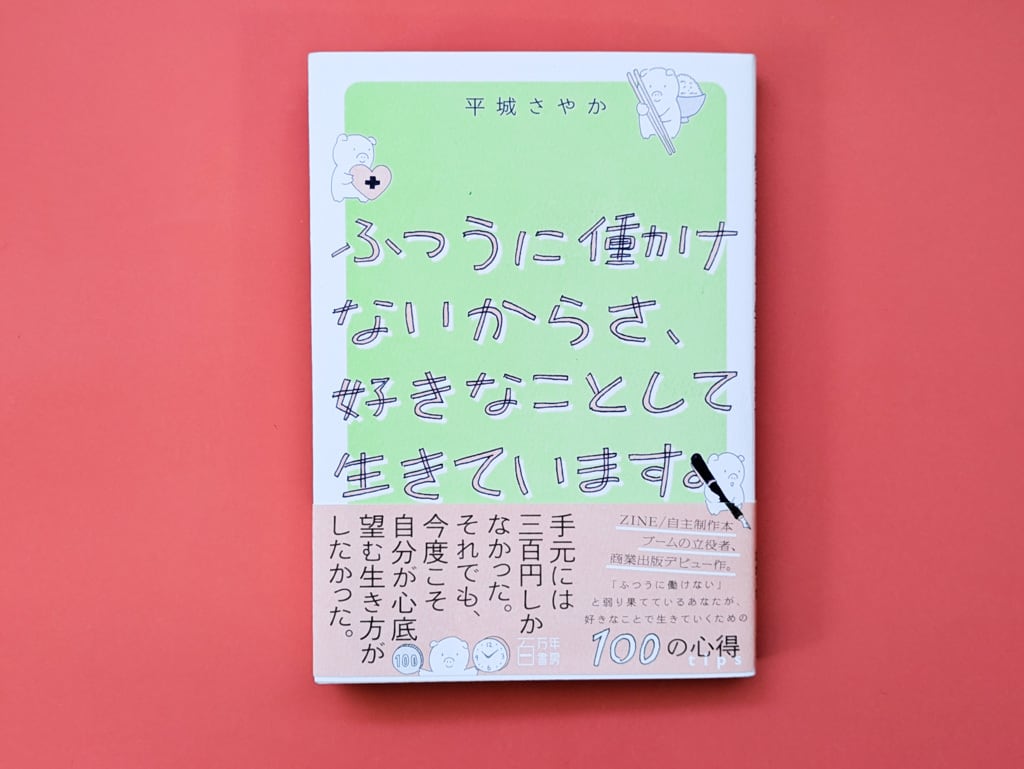 平城さやか
ふつうに働けな
ないからさ、
好きなことして
生きています。
手元には
三百円しか
なかった。
それでも、
今度こそ
自分が心底
望む生き方が
したかった。
ZINE/自主制作本
ブームの立役者、
商業出版デビュー作。
「ふつうに働けない」
と弱り果てているあなたが、
好きなことで生きていくための
100の心得
tips
100
百万年
書房